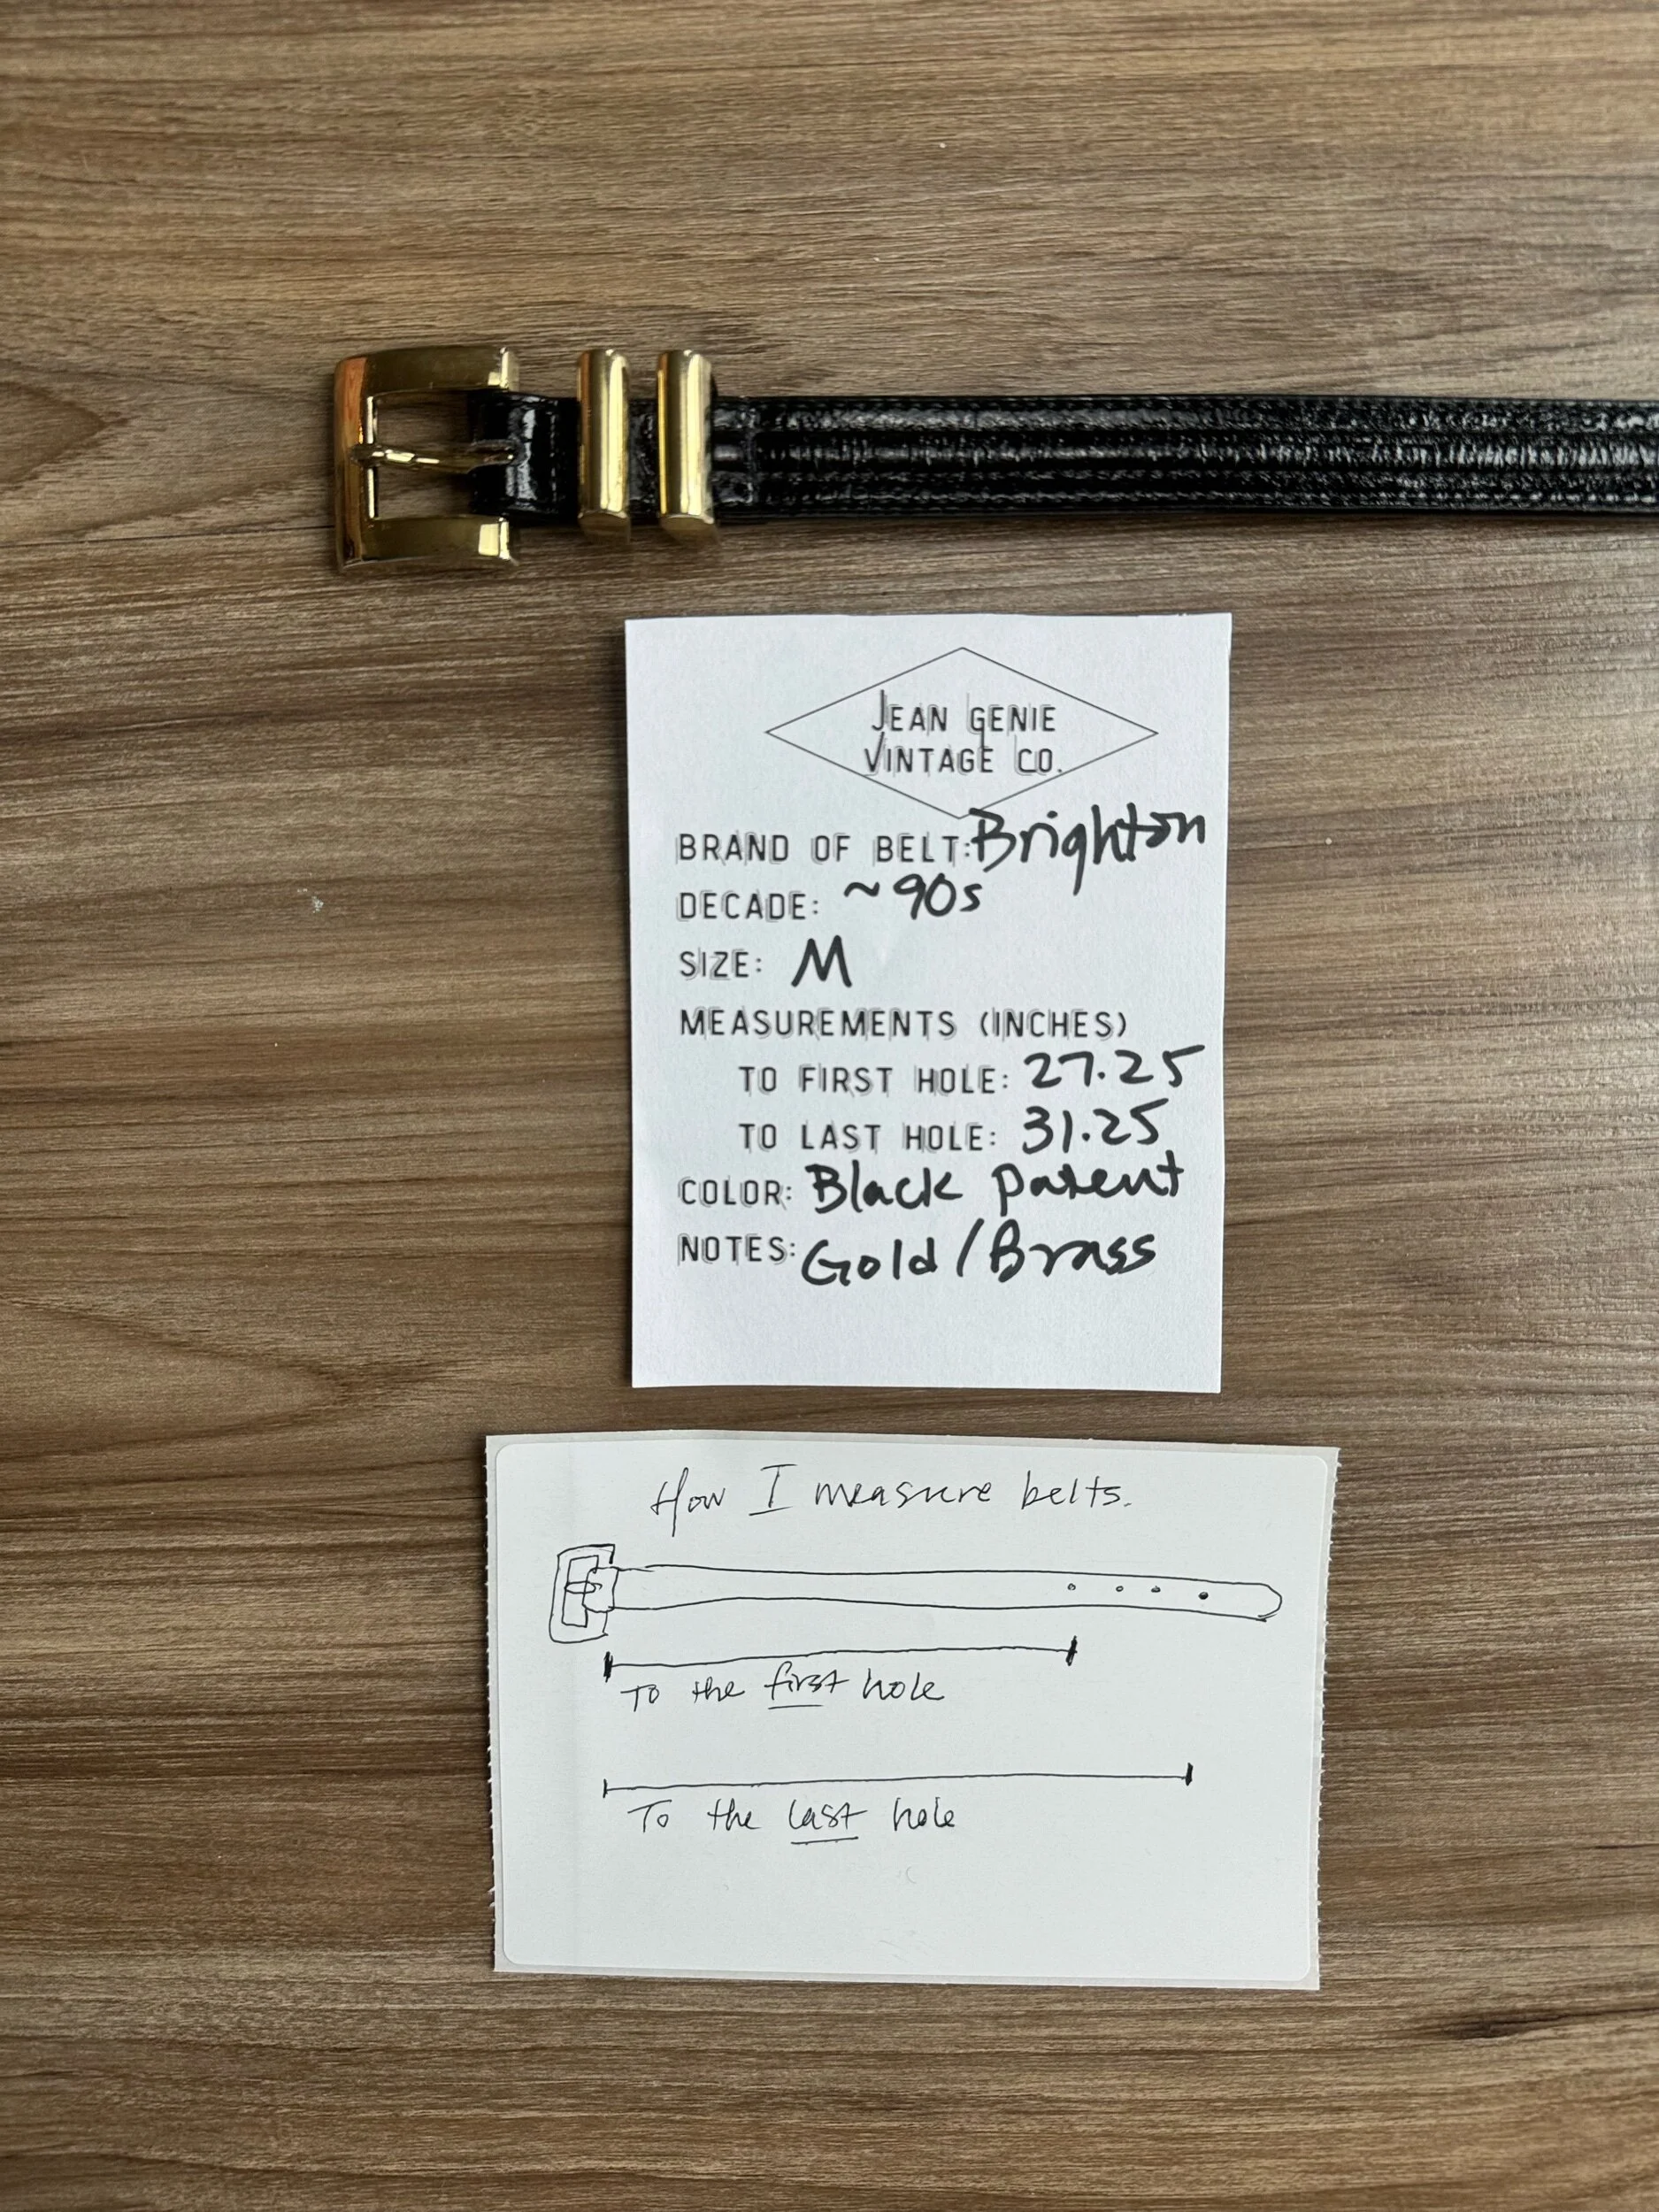 JEAN GENIE
VINTAGE CO.
BRAND OF BELT: Brighton
DECADE: ~90s
SIZE: M
MEASUREMENTS (INCHES)
TO FIRST HOLE: 27.25
TO LAST HOLE: 31.25
COLOR: Black patent
NOTES: Gold/Brass
How I measure belts.
To the first hole
To the last hole